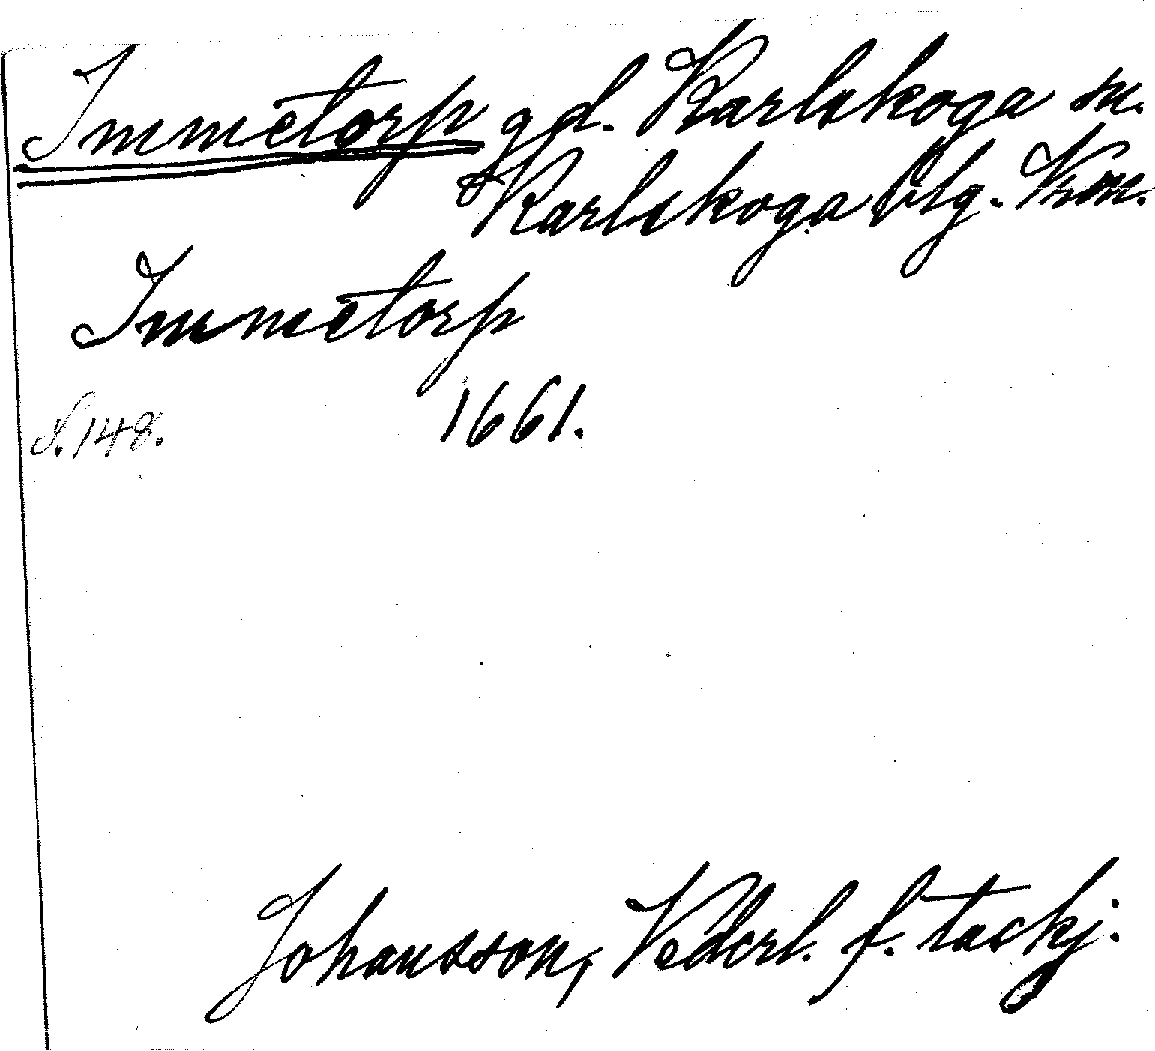 Immetorp gd. Karlskoga sn.
Karlskoga blg. Krm.
Immetorp
S. 148. 1661.
Johansson, Vederl. f. tackj.